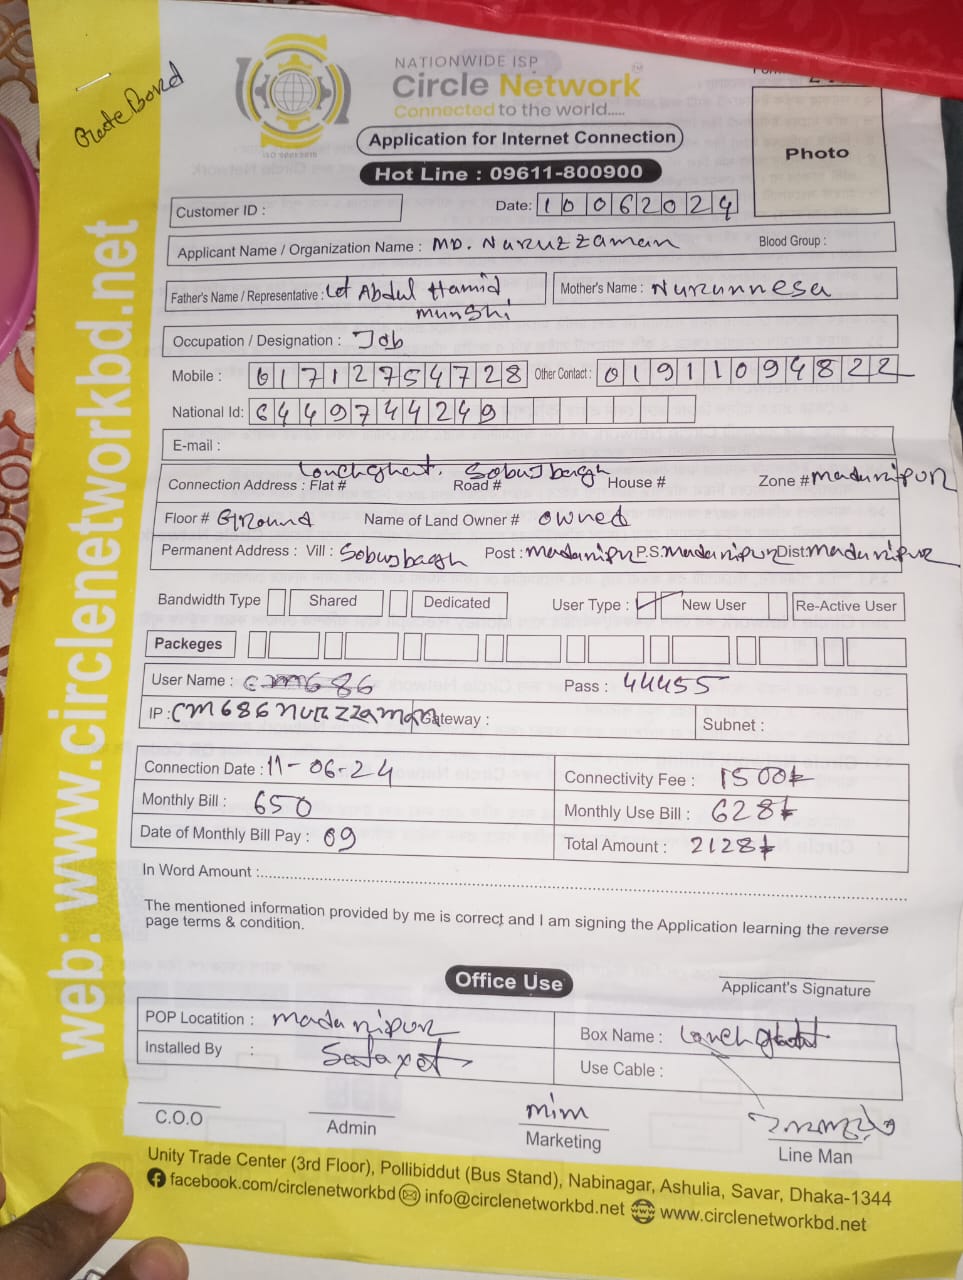 NATIONWIDE ISP
Circle Network
Connected to the world.....
Application for Internet Connection
Hot Line : 09611-800900
Photo
ISO 9001:2015
web: www.circlenetworkbd.net
Customer ID :
Date: 10062024
Applicant Name / Organization Name : MD. Nuruzzaman Blood Group :
Father's Name / Representative : Let Abdul Hamid Munshi Mother's Name : Nurunnesa
Occupation / Designation : Job
Mobile : 01712754728 Other Contact : 01911094822
National Id: 6449744249
E-mail :
Connection Address : Flat # Lonchghat. Road # Sobujbagh House # Zone # madaripur
Floor # Ground Name of Land Owner # owned
Permanent Address : Vill : Sobujbagh Post : madaripur P.S. madaripur Dist: madaripur
Bandwidth Type Shared Dedicated User Type : New User Re-Active User
Packeges
User Name : Pass : 44455
IP : cm686nurzzaman Gateway : Subnet :
Connection Date : 11-06-24 Connectivity Fee : 1500/=
Monthly Bill : 650 Monthly Use Bill : 628/=
Date of Monthly Bill Pay : 09 Total Amount : 2128/=
In Word Amount :
The mentioned information provided by me is correct and I am signing the Application learning the reverse
page terms & condition.
Office Use
Applicant's Signature
POP Locatition : madaripur Box Name : Lonchghat
Installed By : Use Cable :
C.O.O
Admin
mim
Marketing
Line Man
Unity Trade Center (3rd Floor), Pollibiddut (Bus Stand), Nabinagar, Ashulia, Savar, Dhaka-1344
facebook.com/circlenetworkbd info@circlenetworkbd.net www.circlenetworkbd.net